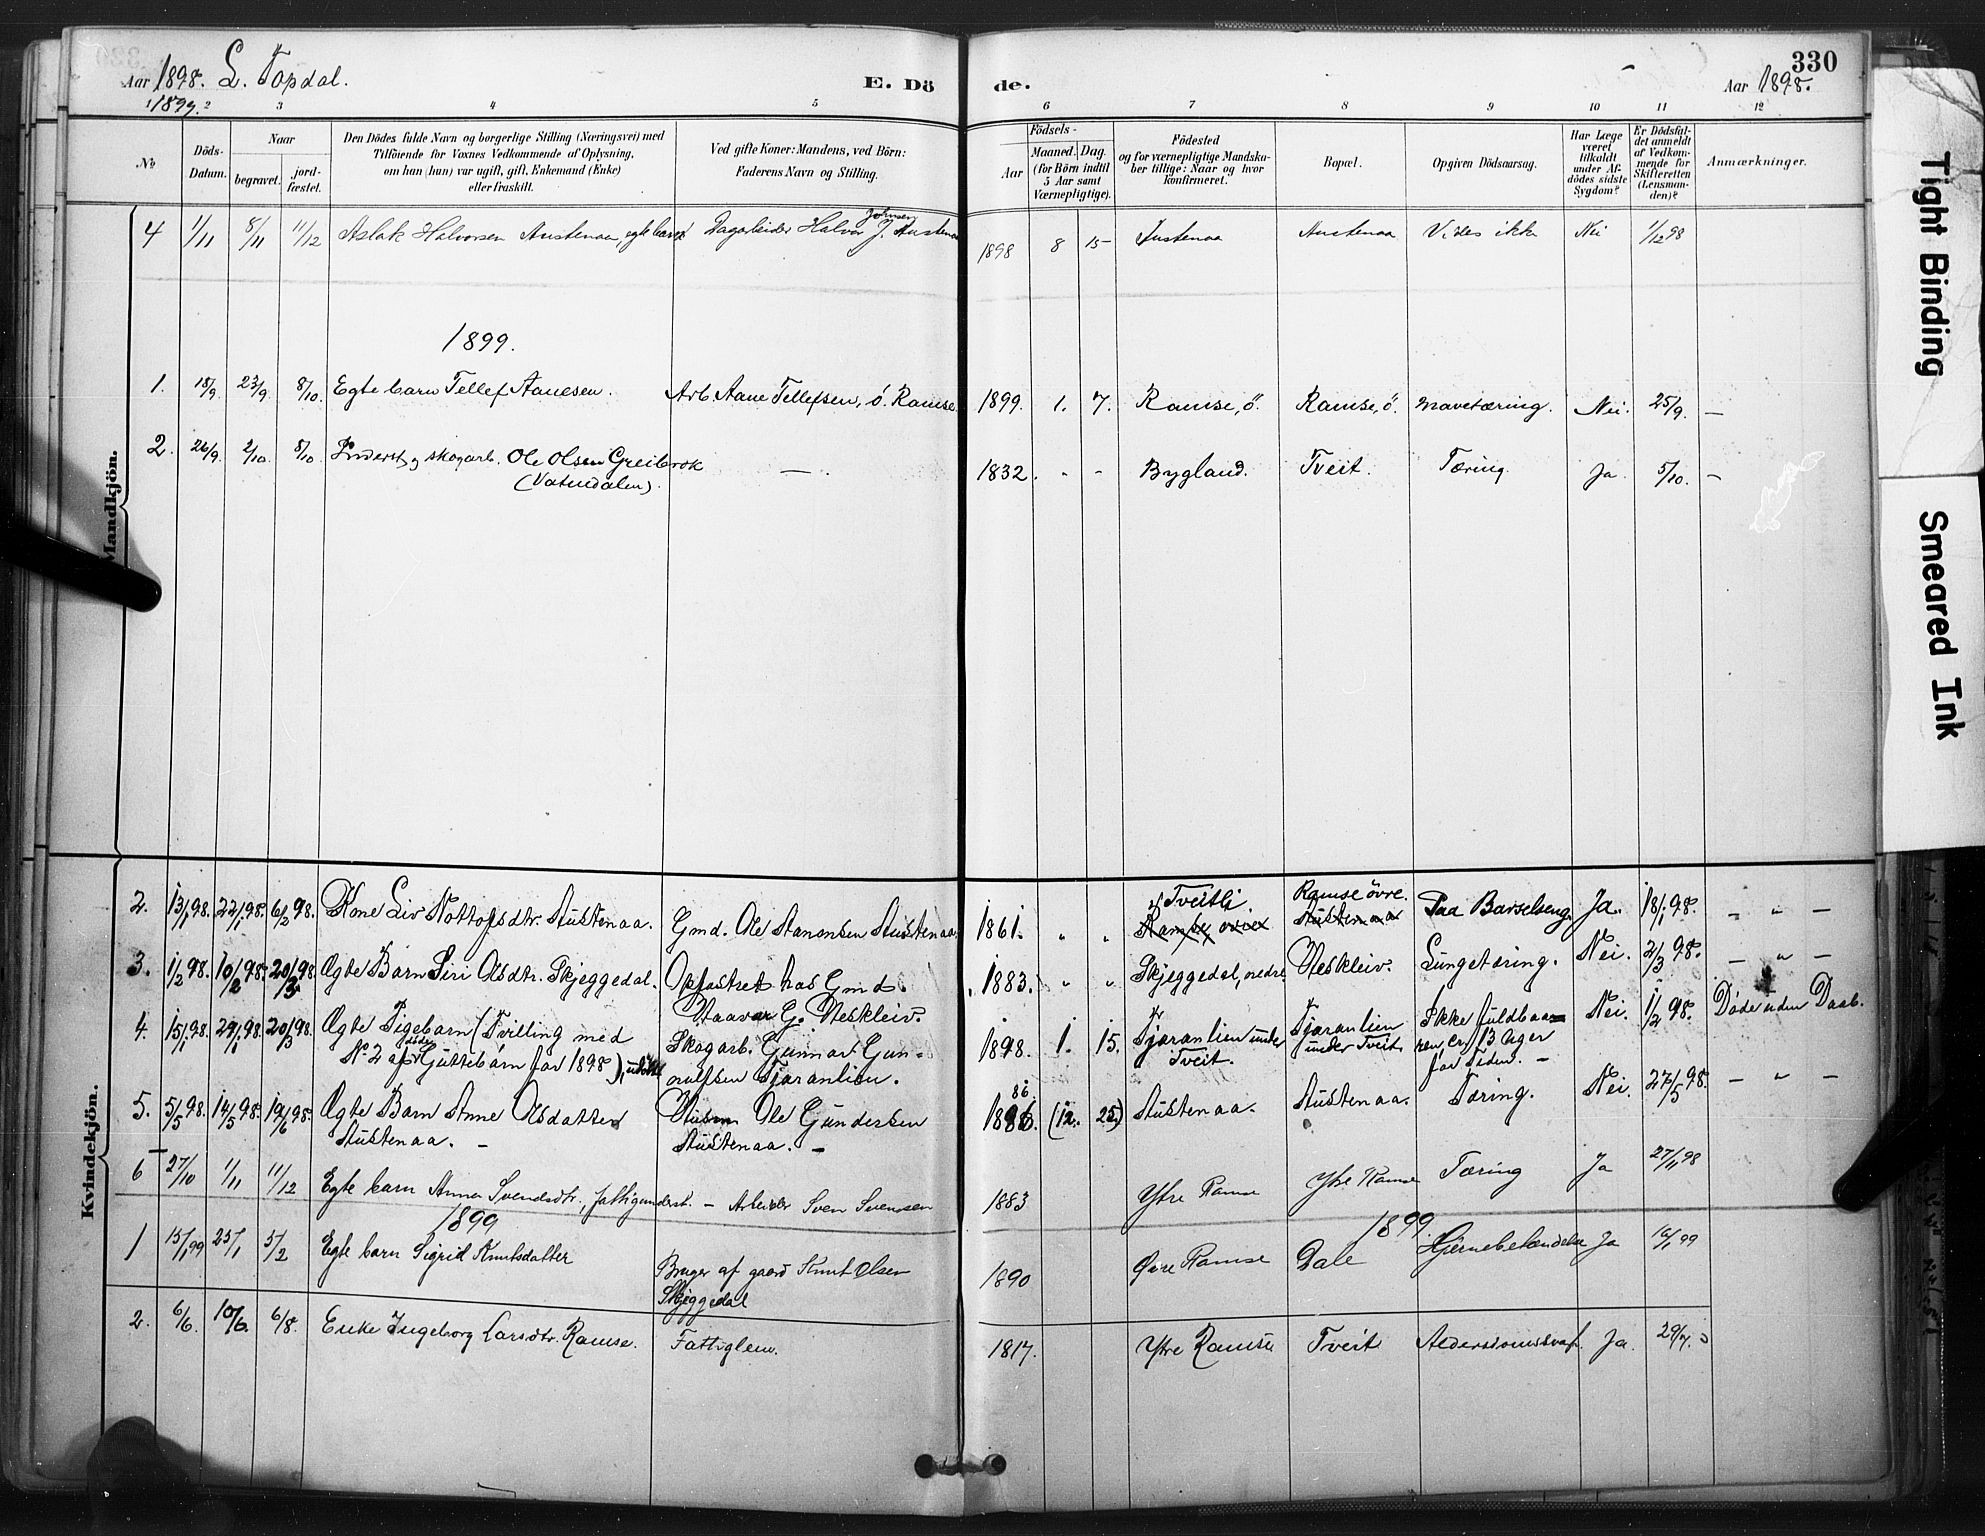 330
Aar 1898. L. Topdal. E. Dö de. Aar 1898.
1899.
1 2 3 4 5 6 7 8 9 10 11 12
No
Döds-Datum.
Naar
begravet.
jord-fæstet.
Den Dödes fulde Navn og borgerlige Stilling (Næringsvei) med
Tilföiende for Voxnes Vedkommende af Oplysning,
om han (hun) var ugift, gift, Enkemand (Enke)
eller fraskilt.
Ved gifte Koner: Mandens, ved Börn:
Faderens Navn og Stilling.
Födsels-
Aar
Maaned. Dag
(for Börn indtil
5 Aar samt
Værnepligtige).
Födested
og for værnepligtige Mandska-
ber tillige: Naar og hvor
konfirmeret.
Bopæl.
Opgiven Dödsaarsag.
Har Læge
været
tilkaldt
under Af-
dödes sidste
Sygdom?
Er Dödsfal-
det anmeldt
af Vedkom-
mende for
Skifteretten
(Lensman-
den)?
Anmærkninger.
Mandkjön.
4 1/11 8/11 11/12 Aslak Halvorsen Austenaa, egte barn Dagarbeider Halvor J. Austenaa 1898 8 15 Austenaa Austenaa Vides ikke Nei 1/12 98
Johnsen
1899.
1. 18/9 23/9 8/10. Egte barn Tellef Aanesen. Arb. Aane Tellefsen, ö. Ramse. 1899. 1. 7. Ramse, ö. Ramse, ö. Mavetæring. Nei. 25/9. —
2. 26/9. 2/10. 8/10. Inderst og skogarb. Ole Olsen Greibrok — 1832. - - Bygland. Tveit. Tæring. Ja. 5/10. —
(Vatnedalen).
Kvindekjön.
2. 13/1 98. 22/1 98. 6/2 98. Kone Liv Nottolfsdtr. Austenaa. Gmd. Ole Aanonsen Austenaa. 1861. " " Tveitli Ramse övre. Paa Barselseng. Ja. 18/1 98. — " —
Ramse övre Austenaa
3. 1/2 98. 10/2 98. 20/3 98. Ægte Barn Siri Olsdtr. Skjeggedal. Opfostret hos Gmd. 1883. " " Skjeggedal, nedre Neskleiv. Lungetæring. Nei. 2/3 98. — " —
Haavar G. Neskleiv.
4. 15/1 98. 29/1 98. 20/3 98. Ægte Pigebarn (Tvilling med Skogarb. Gunnar Gun- 1898. 1. 15. Tjaranlien under Tjaranlien Ikke fuldbaa- Nei. 1/2 98. Døde uden Daab.
No 2 af døde Guttebarn for 1898), udöbt nulfsen Tjaranlien. Tveit. under Tveit. ren, c. 13 Uger
for Tiden. —
5. 5/5 98. 14/5 98. 19/6 98. Ægte Barn Anne Olsdatter Husm. Ole Gundersen 1886. (12. 25.) Austenaa. Austenaa. Tæring. Nei. 27/5 98. — " —
86.
Austenaa. — Austenaa. —
6 27/10 1/11 11/12 Egte barn Anna Svendsdtr., fattigunderst. — Arbeider Sven Svensen 1883 Ytre Ramse Ytre Ramse Tæring Ja 27/11 98
1899 1899.
1 15/1 99 25/1 5/2 Egte barn Sigrid Knutsdatter Bruger af gaard Knut Olsen 1890 Øvre Ramse Dale Hjernebetændelse Ja 16/1 99
Skjeggedal
2. 6/6. 10/6. 6/8. Enke Ingeborg Larsdtr. Ramse. Fattiglem. 1817. Ytre Ramse Tveit Alderdomssvagh. Ja. 29/7.
Tight Binding
Smeared Ink